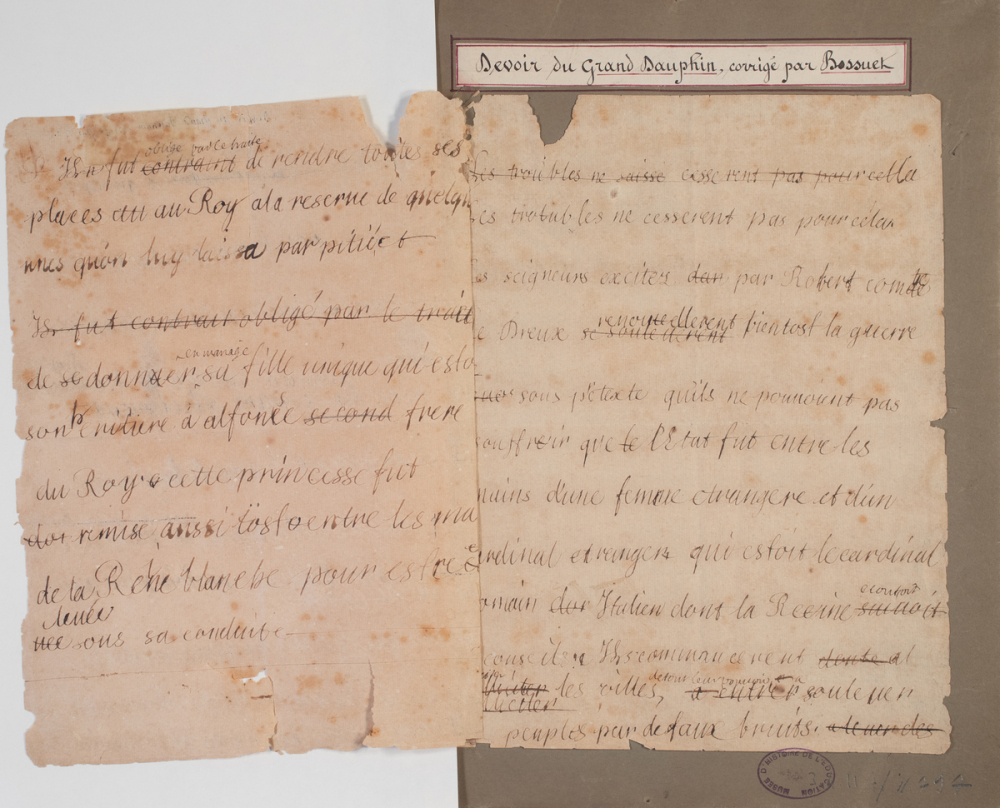 Devoir du Grand Dauphin, corrigé par Bossuet
obligé par le traité
Il fut contraint de rendre toutes ses
places au Roy a la reserve de quelqu
unes qu'on luy laissa par pitié et
Il fut contrait obligé par le trait
en mariage
de se donner sa fille unique qui esto
son heritiere à alfonce second frere
du Roy cette princesse fut
remise aussi tost entre les ma
de la Reine blanche pour estre
levée
sous sa conduite
les troubles ne saisse cesserent pas pour cella
es troubles ne cesserent pas pour cela
es seigneurs excitez par Robert comte
renouvellerent
e Dreux se souleuerent bientost la guerre
sous pretexte qu'ils ne pouvoient pas
souffrir que le l'Etat fut entre les
mains d'une femme etrangere et d'un
ardinal etranger qui estoit le cardinal
ecoutoit
omain Italien dont la Reine suivoit
conseils Ils commancerent
les villes, a entrer souleuer
peuples par de faux bruits. des
MUSÉE D'HISTOIRE DE L'EDUCATION